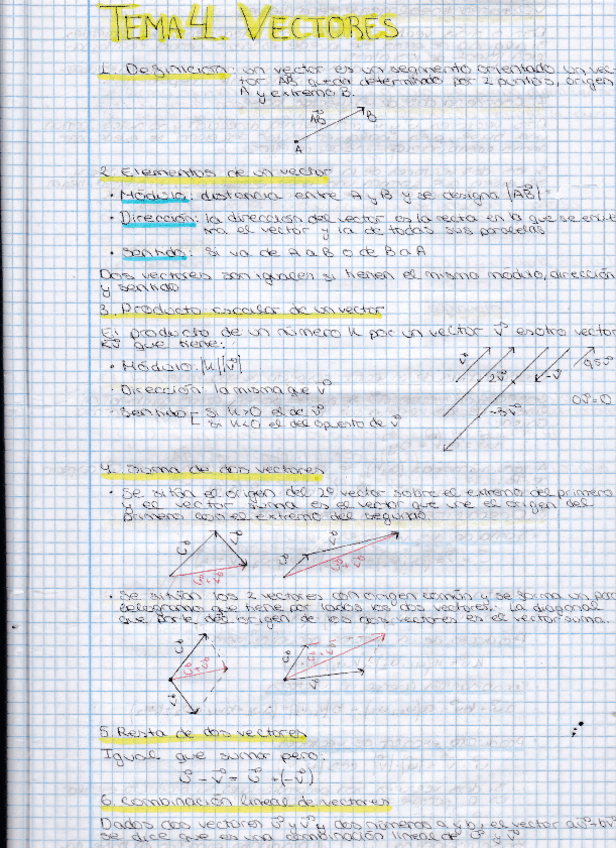 TEMA 4. VECTORES
1. Definición: un vector es un segmento orientado un vec
tor AB queda determinado por 2 puntos, origen
A y extremo B.
AB B
A
2. Elementos de un vector
· Módulo: distancia entre A y B y se designa |AB|
· Dirección: la dirección del vector es la recta en la que se encuen
tra el vector y la de todas sus paralelas
· Sentido: si va de A a B o de B a A
Dos vectores son iguales si tienen el mismo módulo, dirección
y sentido
3. Producto escalar de un vector
El producto de un número K por un vector v⃗ es otro vector
Kv⃗ que tiene:
· Módulo: |K||v⃗|
· Dirección: la misma que v⃗
· Sentido [ si K>0 el de v⃗
si K<0 el del opuesto de v⃗
v⃗ 2v⃗ -v⃗ 0,5v⃗
-3v⃗ 0v⃗=0
4. Suma de dos vectores
· Se sitúa el origen del 2º vector sobre el extremo del primero
y el vector suma es el vector que une el origen del
primero con el extremo del segundo.
u⃗ v⃗ u⃗+v⃗ u⃗ v⃗ u⃗+v⃗
· Se sitúan los 2 vectores con origen común y se forma un para
lelogramo que tiene por lados los dos vectores. La diagonal
que parte del origen de los dos vectores es el vector suma.
u⃗ u⃗+v⃗ v⃗ u⃗ u⃗+v⃗ v⃗
5. Resta de dos vectores
Igual que sumar pero:
u⃗ - v⃗ = u⃗ + (-v⃗)
6. Combinación lineal de vectores
Dados dos vectores u⃗ y v⃗ y dos números a y b, el vector au⃗+bv⃗
se dice que es una combinación lineal de u⃗ y v⃗